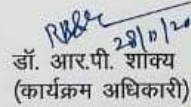 28/11/20
डॉ. आर.पी. शाक्य
(कार्यक्रम अधिकारी)